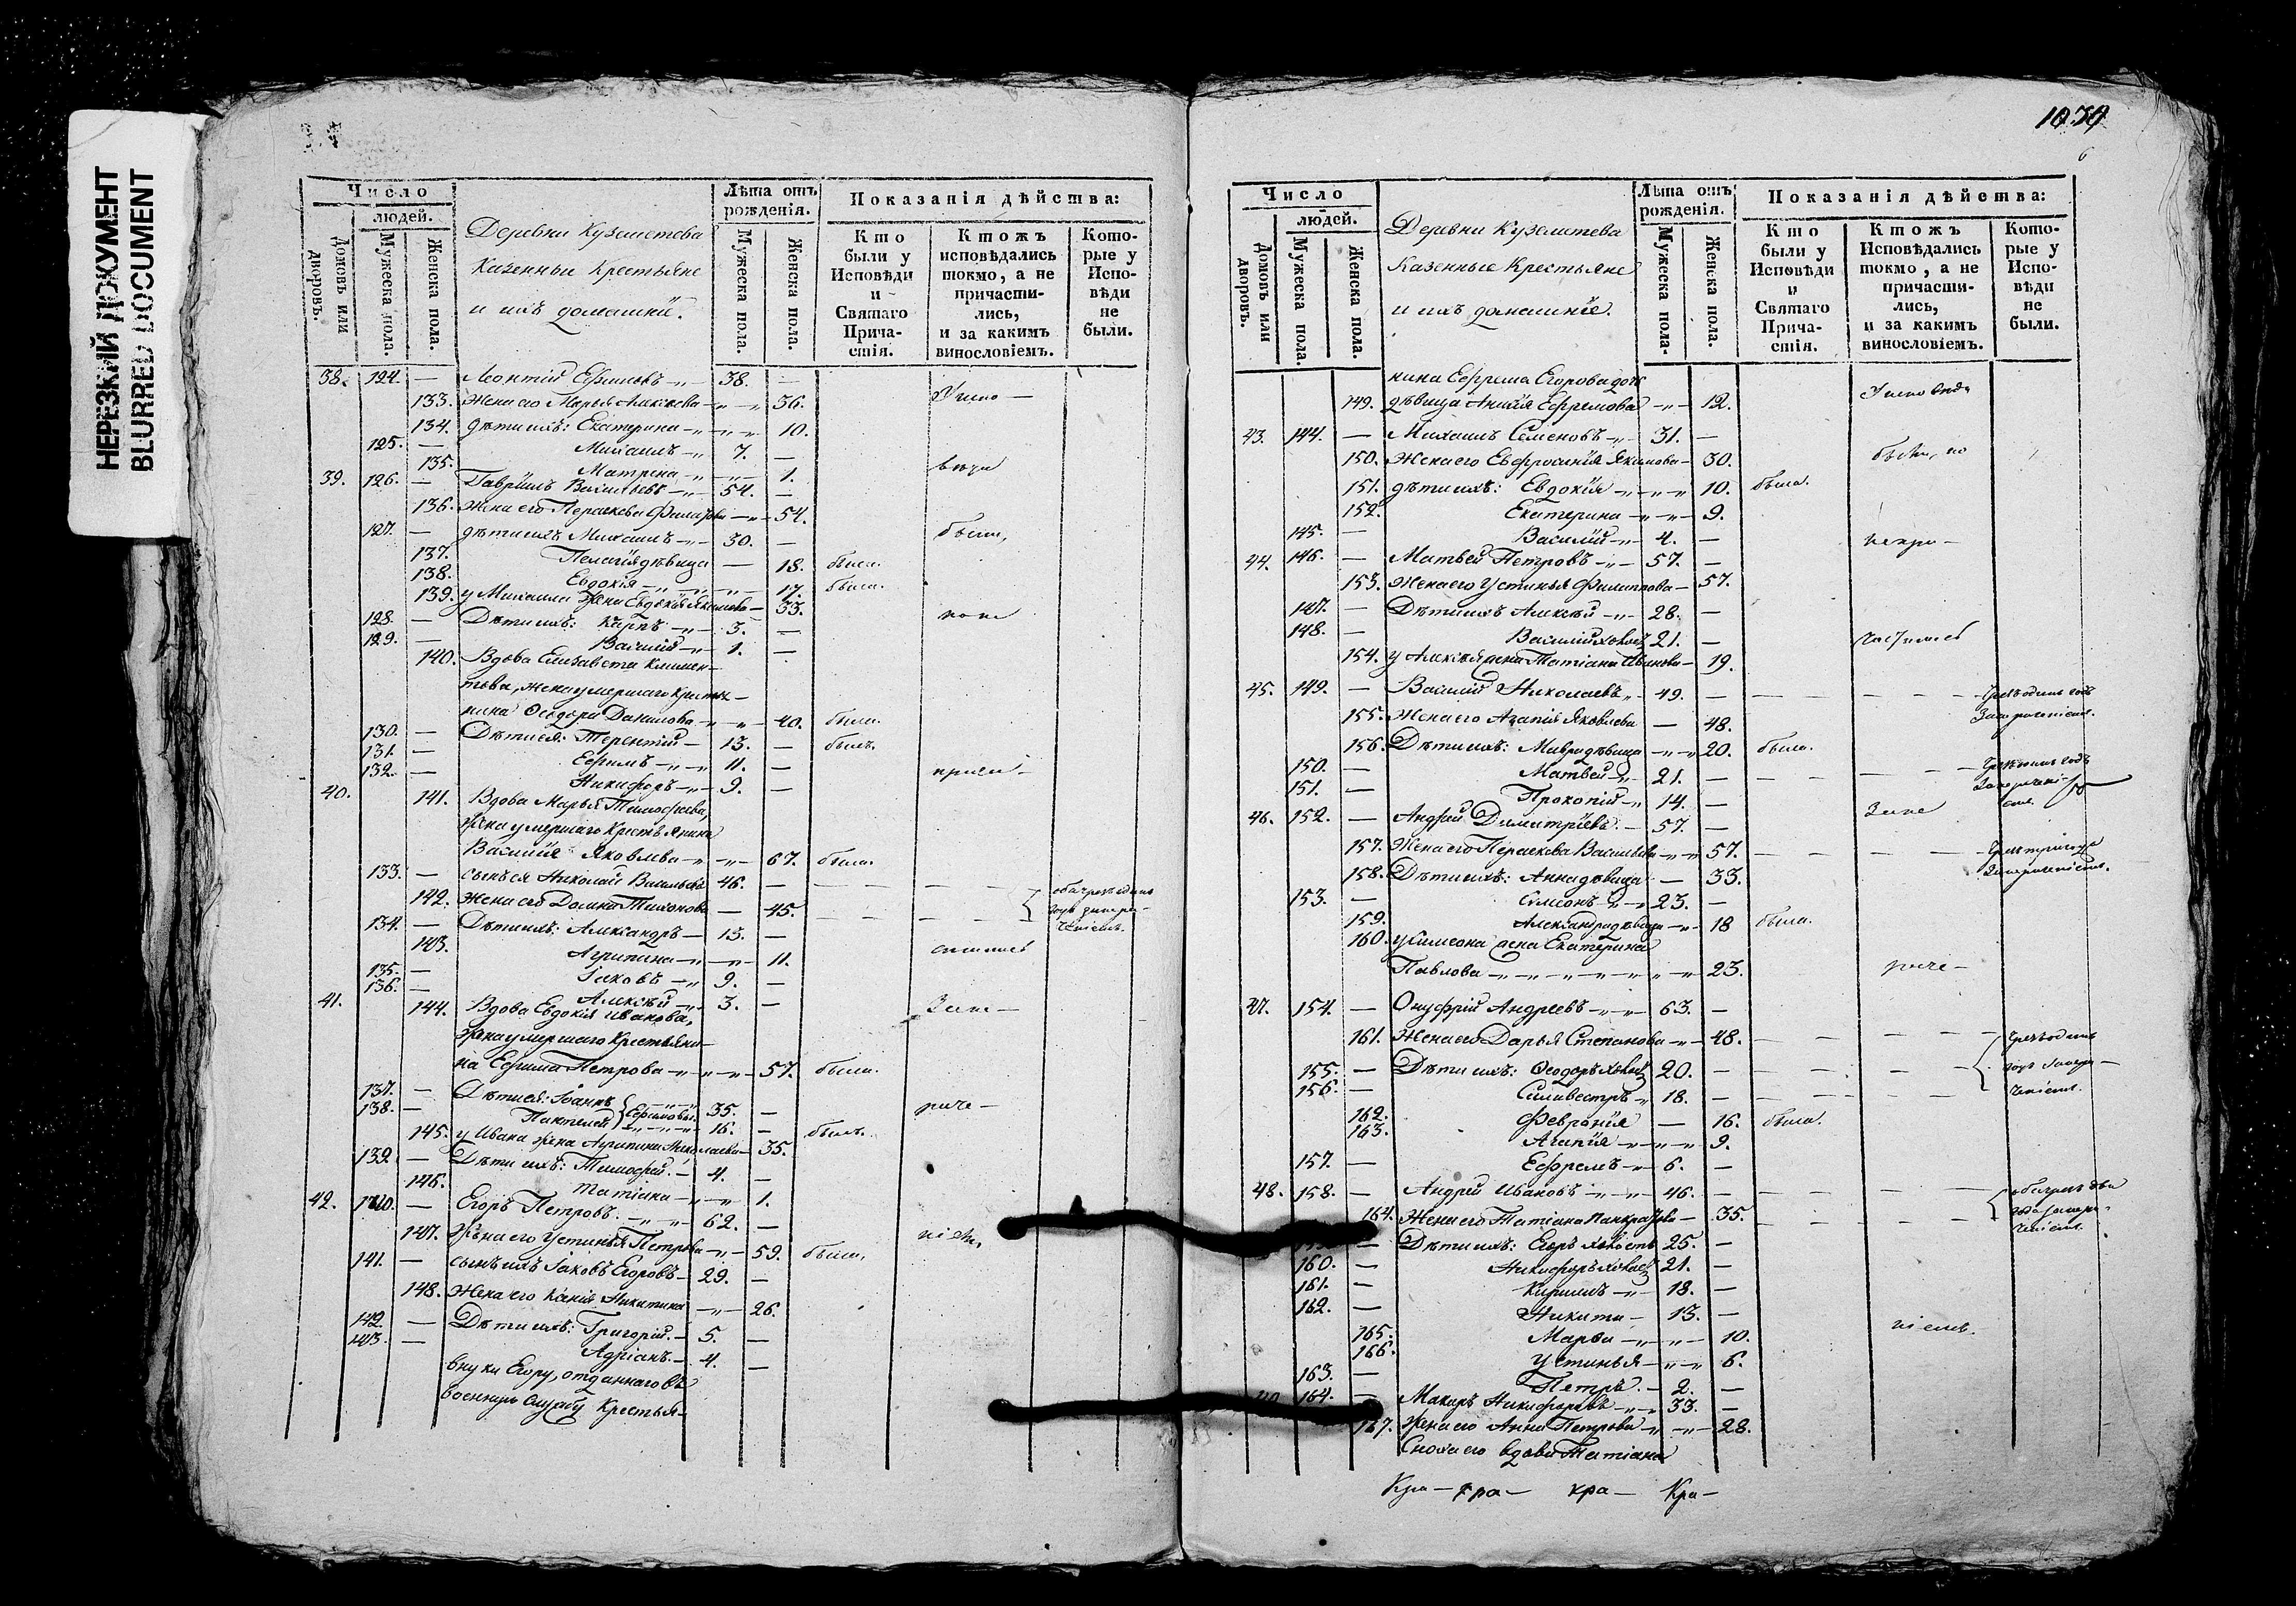 НЕРЕЗКИЙ ДОКУМЕНТ
BLURRED DOCUMENT
Число
людей.
Домовъ или дворовъ.
Мужеска пола.
Женска пола.
Деревни
Казенныи Крестьяне
и ихъ домашніи.
Лѣта отъ рожденія.
Мужеска пола.
Женска пола.
Показанія дѣйства:
Кто были у Исповѣди и Святаго Причастія.
Ктожъ исповѣдались токмо, а не причастились, и за какимъ винословіемъ.
Которые у Исповѣди не были.
38. 124. — Леонтій Ефимовъ 38. —
133. Жена его Марья Алексѣева 36.
134. Дѣти ихъ: Екатерина 10.
125. — Михаилъ 7. —
135. Матрена 1.
39. 126. — Гавріилъ Васильевъ 54. —
136. Жена его Параскева 54.
127. — дѣти ихъ Михаилъ 30. —
137. Пелагія дѣвица — 18. была.
138. Евдокія 17. была.
139. у Михаила жена Евдокія 33.
128. — Дѣти ихъ: Карпъ 3. —
129. — Василій 1. —
140. Вдова Елизавета Климен-
това, жена умершаго Крестья-
нина Ѳеодора Данилова 40. была.
130. — Дѣти ея: Терентій 13. — былъ.
131. — Ефимъ 11. —
132. — Никифоръ 9. —
40. 141. Вдова Марья Тимофеева,
жена умершаго Крестьянина
Василія Яковлева 67. была.
133. — сынъ ея Николай Васильевъ 46. —
142. Жена его Домна Тихонова — 45.
134. — Дѣти ихъ: Александръ 13. —
143. Агрипина 11.
135. — Іаковъ 9. —
136. — Алексѣй 3. —
41. 144. Вдова Евдокія Иванова,
жена умершаго Крестьяни-
на Ефима Петрова 57. была.
137. — Дѣти ея: Іоаннъ 35. —
138. — Пантелей Ефимовы 16. — былъ.
145. у Ивана жена Агрипина Николаева 35.
139. — Дѣти ихъ: Тимофей 4. —
146. Татіана 1.
42. 140. — Егоръ Петровъ 62. —
147. Жена его Устинья Петрова 59. была,
141. — сынъ ихъ Іаковъ Егоровъ 29. —
148. Жена его Ксенія Никитина 26.
142. — Дѣти ихъ: Григорій 5. —
143. — Адріанъ 4. —
внуки Егору, отданнаго въ
военную службу Крестья-
1039
6
Число
людей.
Домовъ или дворовъ.
Мужеска пола.
Женска пола.
Деревни
Казенные Крестьяне
и ихъ домашніе.
Лѣта отъ рожденія.
Мужеска пола.
Женска пола.
Показанія дѣйства:
Кто были у Исповѣди и Святаго Причастія.
Ктожъ Исповѣдались токмо, а не причастились, и за какимъ винословіемъ.
Которые у Исповѣди не были.
нина Ефрема Егорова дочь
149. дѣвица Ефремова 12.
43. 144. — Михаилъ Семеновъ 31. —
150. Жена его Евфросинія Якимова 30.
151. дѣти ихъ: Евдокія 10. была.
152. Екатерина 9.
145. — Василій 4. —
44. 146. — Матвей Петровъ 57. —
153. Жена его Устинья Филиппова 57.
147. — Дѣти ихъ Алексѣй 28. —
148. — Василій холостъ 21. —
154. у Алексѣя жена Татіана Иванова 19.
45. 149. — Василій Николаевъ 49. —
155. Жена его Агапія Яковлева — 48.
156. Дѣти ихъ: Мавра дѣвица 20. была.
150. — Матвей 21. —
151. — Прокопій 14. —
46. 152. — Андрей Димитріевъ 57. —
157. Жена его Параскева Васильева 57.
158. Дѣти ихъ: Анна дѣвица — 33.
153. — Симеонъ 23. —
159. Александра дѣвица 18 была.
160. у Симеона жена Екатерина
Павлова 23.
47. 154. — Онуфрій Андреевъ 63. —
161. Жена его Дарья Степанова 48.
155. — Дѣти ихъ: Ѳеодоръ холостъ 20. —
156. — Силивестръ 18. —
162. Февронія — 16. была.
163. Агапія 9.
157. — Ефремъ 6. —
48. 158. — Андрей Ивановъ 46. —
164. Жена его Татіана Панкратова 35.
— Дѣти ихъ: Егоръ холостъ 25. —
160. — Никифоръ холостъ 21. —
161. — Кирилъ 18. —
162. — Никита 13. —
165. Марѳа 10.
166. Устинья 6.
163. — Петръ 2. —
164. — Макаръ Никифоровъ 33. —
167. жена его Анна Петрова 28.
Сноха его вдова Татіана
Кра — кра — кра — Кра —